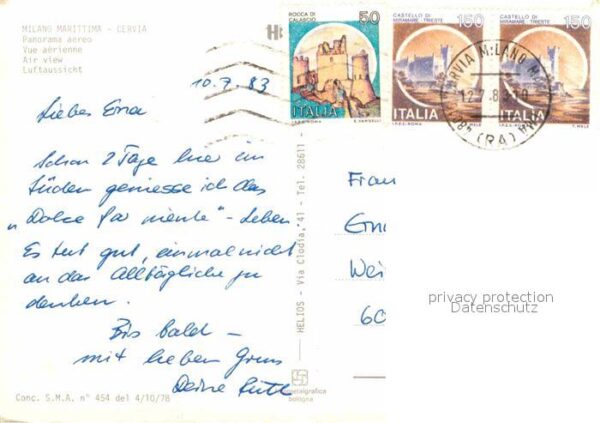 MILANO MARITTIMA - CERVIA
Panorama aereo
Vue aérienne
Air view
Luftaussicht
ROCCA DI CALASCIO 50
ITALIA
CASTELLO DI MIRAMARE · TRIESTE 150
ITALIA
CASTELLO DI MIRAMARE · TRIESTE 150
ITALIA
10.7.83
Liebes Erna
Schon 2 Tage hier im
Süden geniesse ich das
"Dolce far niente" - Leben.
Es tut gut, einmal nicht
an das Alltägliche zu
denken.
Bis bald -
mit lieben Gruss
Deine Ruth
HELIOS - Via Clodia, 41 - Tel. 28611
Frau
Wei
60
privacy protection
Datenschutz
bologna
Conc. S.M.A. n° 454 del 4/10/78